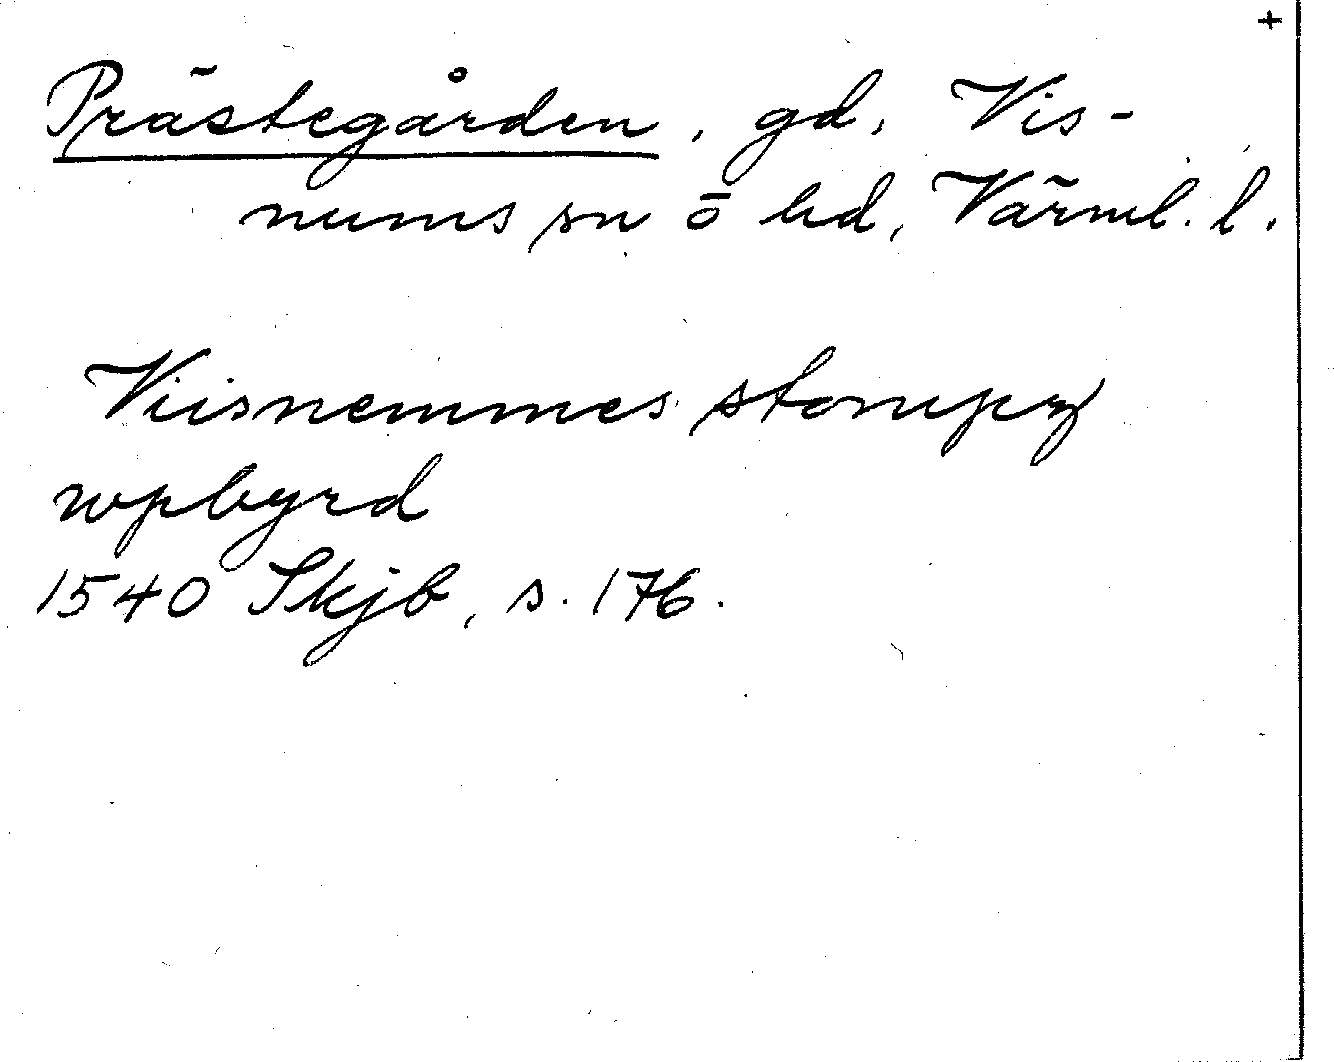 +
Prästegården, gd, Vis-
nums sn ö hd, Värml. l.
Viisnemmes stompn
wpbyrd
1540 Skjb, s. 176.